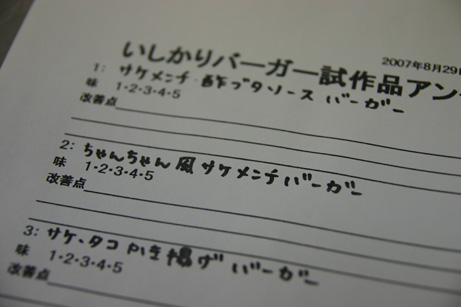 2007年8月29
いしかりバーガー試作品アン
1: サケメンチ 酢ブタソース バーガー
味 1・2・3・4・5
改善点
2: ちゃんちゃん風サケメンチバーガー
味 1・2・3・4・5
改善点
3: サケ、タコ かき揚げ バーガー
味 1・2・3・4・5
改善点